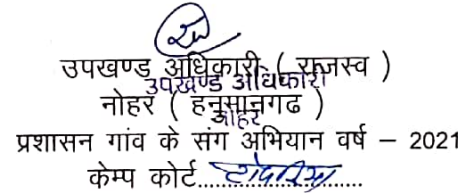 उपखण्ड अधिकारी ( राजस्व )
उपखण्ड अधिकारी
नोहर ( हनुमानगढ )
नोहर
प्रशासन गांव के संग अभियान वर्ष – 2021
केम्प कोर्ट....................